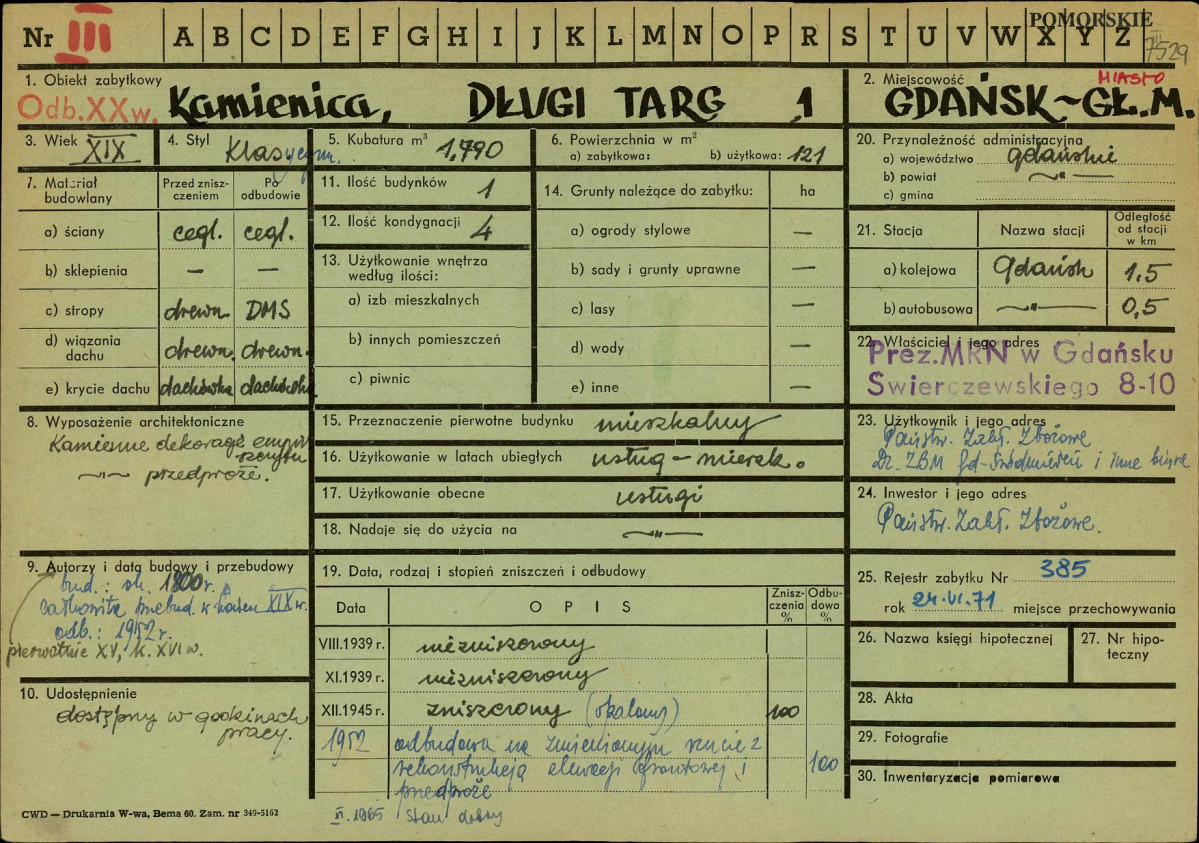 Nr III A B C D E F G H I J K L M N O P R S T U V W X Y Z POMORSKIE
III 7529
1. Obiekt zabytkowy
Odb. XX w. Kamienica, DŁUGI TARG 1
2. Miejscowość MIASTO
GDAŃSK~GŁ.M.
3. Wiek XIX
4. Styl Klasycyzm.
5. Kubatura m³ 1,790
6. Powierzchnia w m²
a) zabytkowa: b) użytkowa: 121
7. Materiał budowlany
Przed zniszczeniem
Po odbudowie
a) ściany cegl. cegl.
b) sklepienia — —
c) stropy drewn. DMS
d) wiązania dachu drewn. drewn.
e) krycie dachu dachówka dachówka
8. Wyposażenie architektoniczne
Kamienne dekoracje
—„— przedproże.
9. Autorzy i data budowy i przebudowy
bud.: ok. 1800 r.
całkowita przebud. w końcu XIX w.
odb.: 1952 r.
pierwotnie XV, k. XVI w.
10. Udostępnienie
dostępny w godzinach
pracy.
11. Ilość budynków 1
12. Ilość kondygnacji 4
13. Użytkowanie wnętrza
według ilości:
a) izb mieszkalnych
b) innych pomieszczeń
c) piwnic
14. Grunty należące do zabytku: ha
a) ogrody stylowe —
b) sady i grunty uprawne —
c) lasy —
d) wody —
e) inne —
15. Przeznaczenie pierwotne budynku mieszkalny
16. Użytkowanie w latach ubiegłych usług-mieszk.
17. Użytkowanie obecne usługi
18. Nadaje się do użycia na —„—
19. Data, rodzaj i stopień zniszczeń i odbudowy
Data OPIS Zniszczenia % Odbudowa %
VIII.1939 r. niezniszczony
XI.1939 r. niezniszczony
XII.1945 r. zniszczony (spalony) 100
1952 odbudowa na zmienionym rzucie z
rekonstrukcją elewacji frontowej i 100
przedproże
VI. 1965 Stan dobry
20. Przynależność administracyjna
a) województwo gdańskie
b) powiat —„—
c) gmina
21. Stacja Nazwa stacji Odległość od stacji w km
a) kolejowa Gdańsk 1.5
b) autobusowa —„— 0,5
22. Właściciel i jego adres
Prez.MRN w Gdańsku
Swierczewskiego 8-10
23. Użytkownik i jego adres
Państw. Zakł. Zbożowe
Dz. ZBM Gd-Śródmieście i inne biura
24. Inwestor i jego adres
Państw. Zakł. Zbożowe.
25. Rejestr zabytku Nr 385
rok 24.VI.71 miejsce przechowywania
26. Nazwa księgi hipotecznej
27. Nr hipoteczny
28. Akta
29. Fotografie
30. Inwentaryzacja pomiarowa
CWD — Drukarnia W-wa, Bema 60. Zam. nr 349-5162